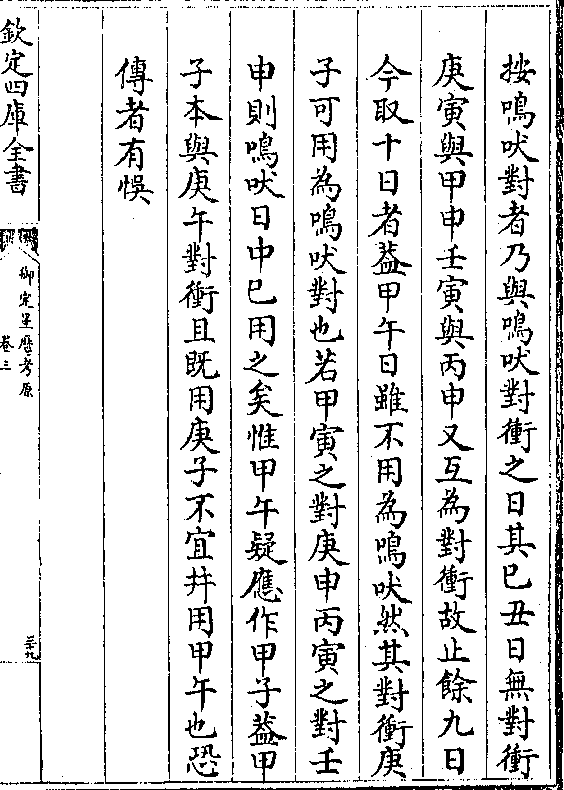 按鳴吠對者乃與鳴吠對衝之日其已丑日無對衝
庚寅與甲申壬寅與丙申又互為對衝故止餘九日
今取十日者葢甲午日雖不用為鳴吠然其對衝庚
子可用為鳴吠對也若甲寅之對庚申丙寅之對壬
申則鳴吠日中已用之矣惟甲午疑應作甲子葢甲
子本與庚午對衝且既用庚子不宜并用甲午也恐
傳者有悞
欽定四庫全書
御定星厯考原
卷三
三十九